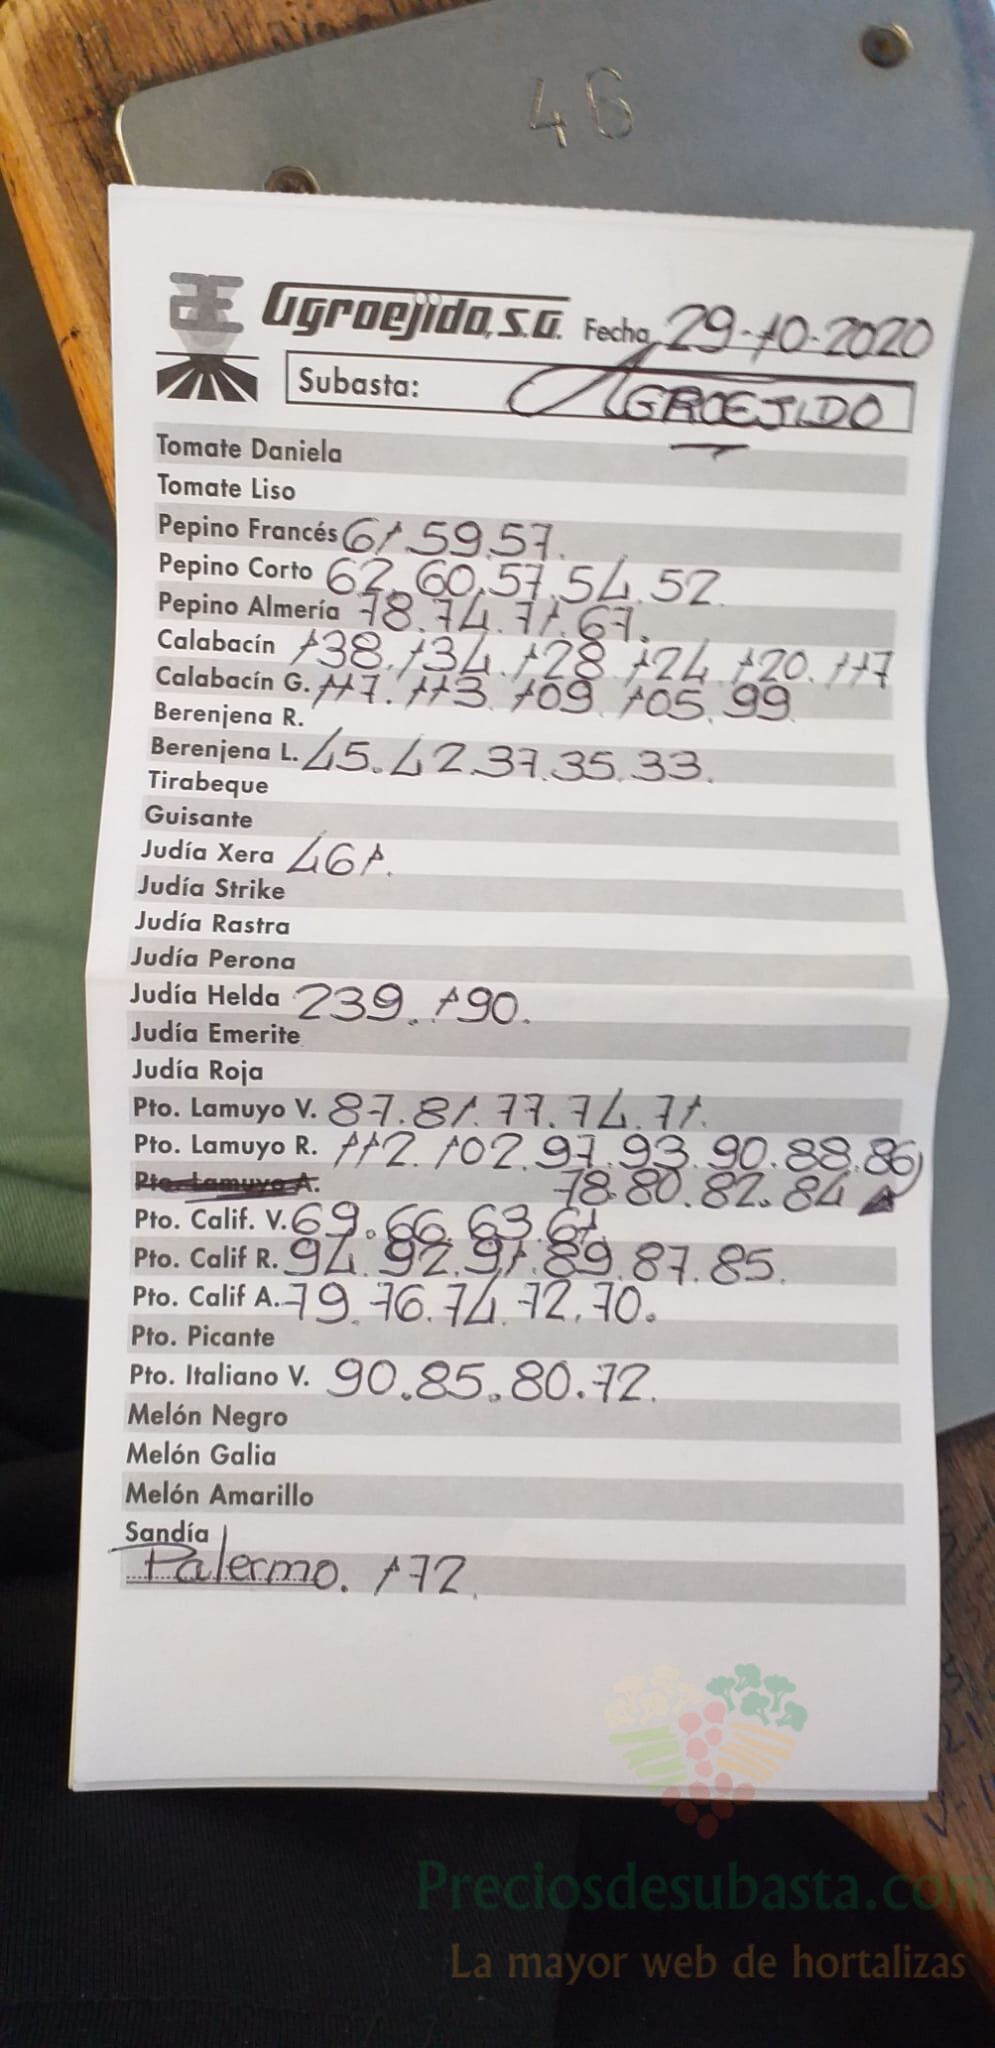 46
AE Agroejido, S.A. Fecha 29-10-2020
Subasta: AGROEJIDO
Tomate Daniela
Tomate Liso
Pepino Francés 61.59.57.
Pepino Corto 62.60.57.54.52
Pepino Almería 78.74.71.67.
Calabacín 138.134.128.124.120.117
Calabacín G. 117.113.109.105.99
Berenjena R.
Berenjena L. 45.42.37.35.33.
Tirabeque
Guisante
Judía Xera 461.
Judía Strike
Judía Rastra
Judía Perona
Judía Helda 239.190.
Judía Emerite
Judía Roja
Pto. Lamuyo V. 87.81.77.74.71.
Pto. Lamuyo R. 112.102.97.93.90.88.86
Pto. Lamuyo A. 78.80.82.84
Pto. Calif. V. 69.66.63.61
Pto. Calif R. 94.92.91.89.87.85.
Pto. Calif A. 79.76.74.72.70.
Pto. Picante
Pto. Italiano V. 90.85.80.72.
Melón Negro
Melón Galia
Melón Amarillo
Sandía
Palermo. 172.
Preciosdesubasta.com
La mayor web de hortalizas